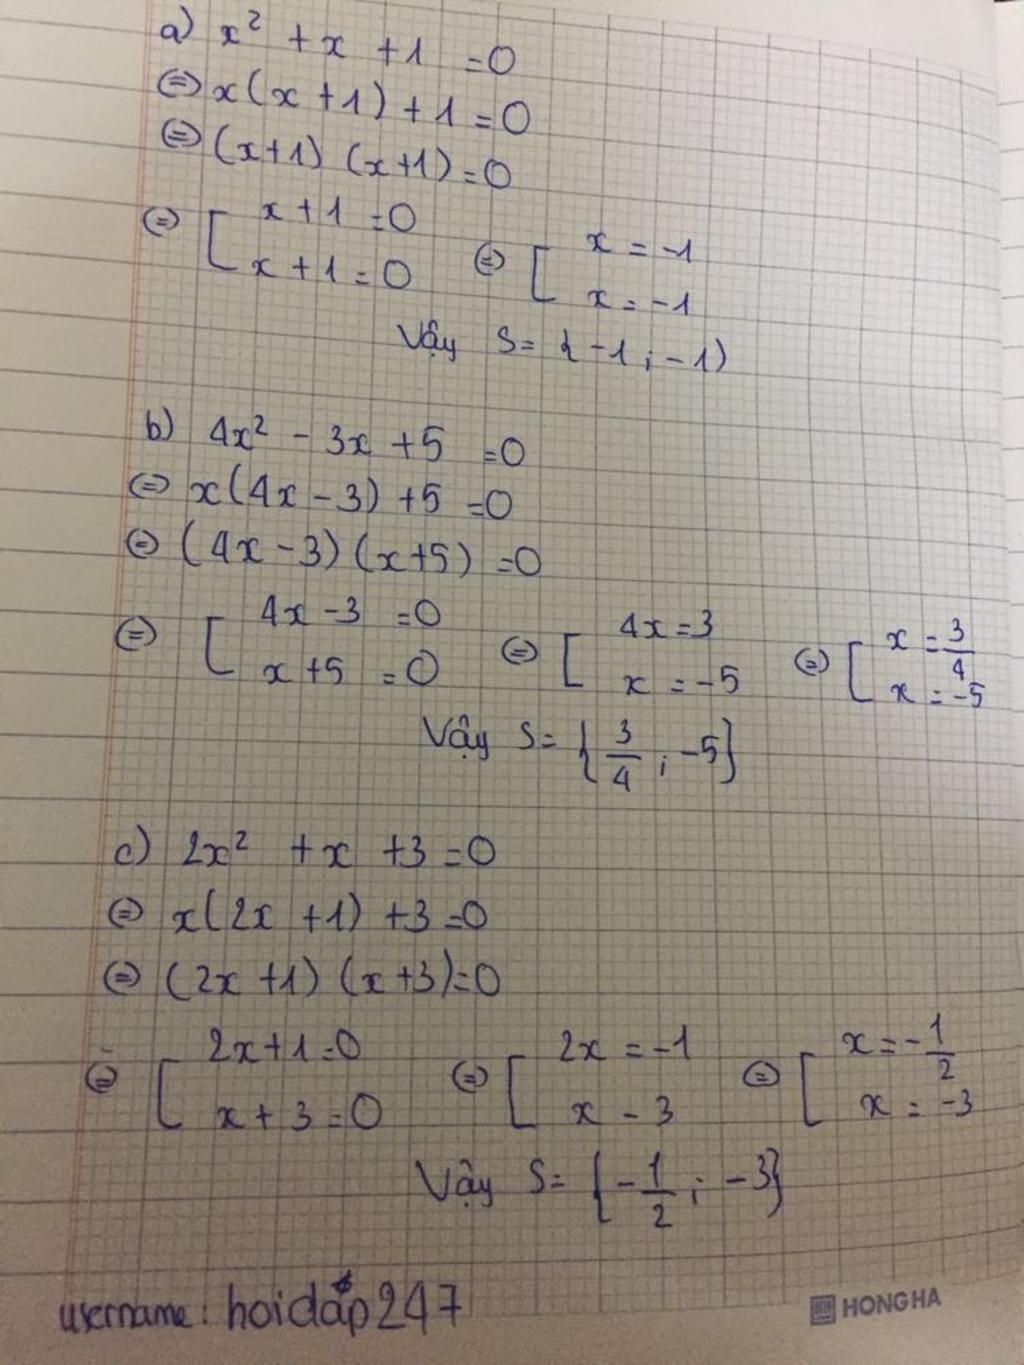 a) x² + x + 1 = 0
⇔ x(x + 1) + 1 = 0
⇔ (x+1) (x+1) = 0
⇔ [ x + 1 = 0 ⇔ [ x = -1
x + 1 = 0 x = -1
Vậy S = { -1 ; -1 )
b) 4x² - 3x + 5 = 0
⇔ x(4x - 3) + 5 = 0
⇔ (4x - 3) (x+5) = 0
⇔ [ 4x - 3 = 0 ⇔ [ 4x = 3 ⇔ [ x = 3/4
x + 5 = 0 x = -5 x = -5
Vậy S = { 3/4 ; -5 }
c) 2x² + x + 3 = 0
⇔ x(2x + 1) + 3 = 0
⇔ (2x + 1) (x + 3) = 0
⇔ [ 2x + 1 = 0 ⇔ [ 2x = -1 ⇔ [ x = -1/2
x + 3 = 0 x - 3 x = -3
Vậy S = { -1/2 ; -3 }
username : hoidap247
HONG HA